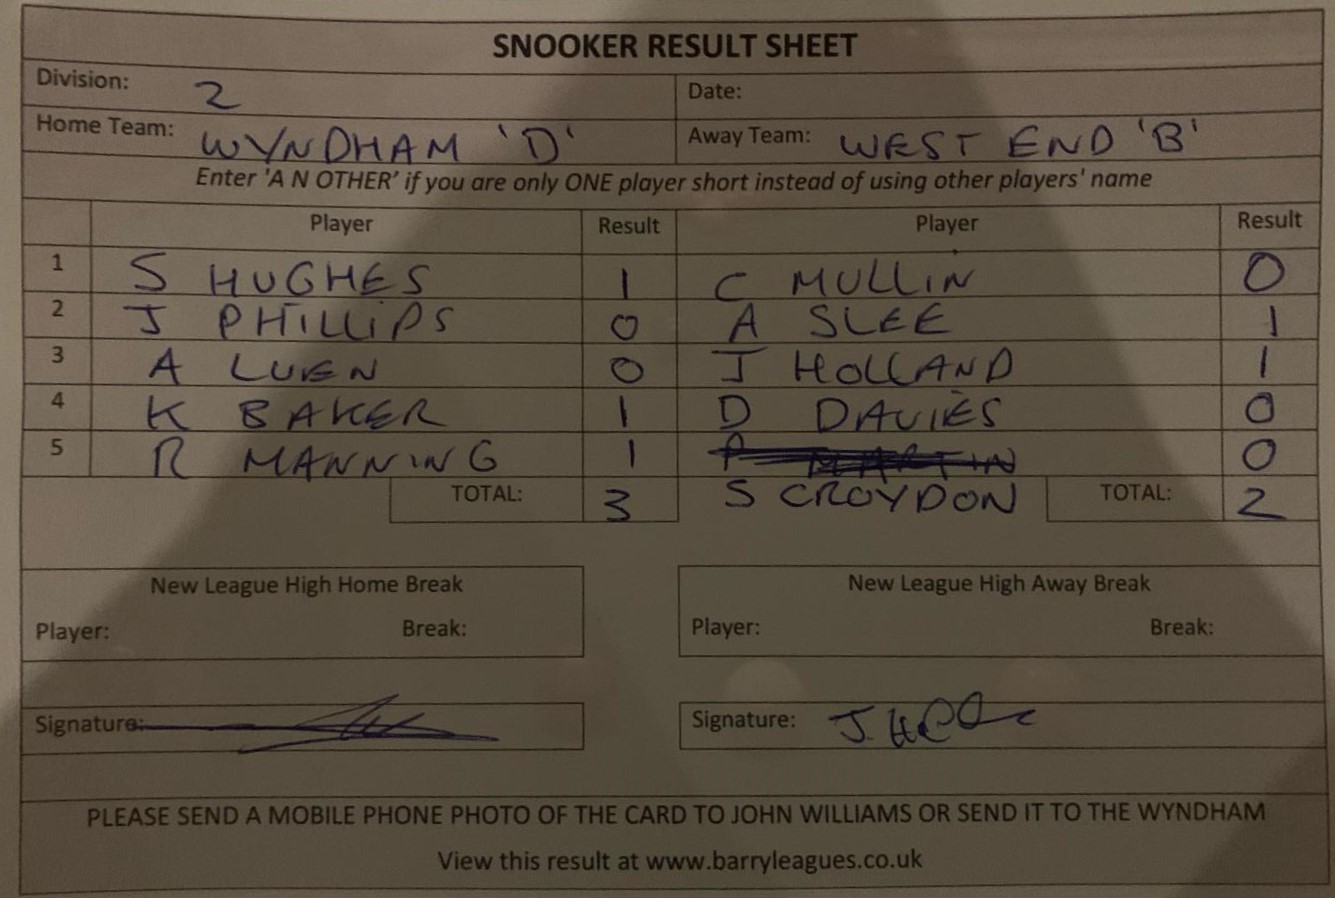 SNOOKER RESULT SHEET
Division: 2 Date:
Home Team: WYNDHAM 'D' Away Team: WEST END 'B'
Enter 'A N OTHER' if you are only ONE player short instead of using other players' name
Player Result Player Result
1 S HUGHES 1 C MULLIN 0
2 J PHILLIPS 0 A SLEE 1
3 A LUEN 0 J HOLLAND 1
4 K BAKER 1 D DAVIES 0
5 R MANNING 1 P MARTIN 0
TOTAL: 3 S CROYDON TOTAL: 2
New League High Home Break New League High Away Break
Player: Break: Player: Break:
Signature: Signature: J.
PLEASE SEND A MOBILE PHONE PHOTO OF THE CARD TO JOHN WILLIAMS OR SEND IT TO THE WYNDHAM
View this result at www.barryleagues.co.uk